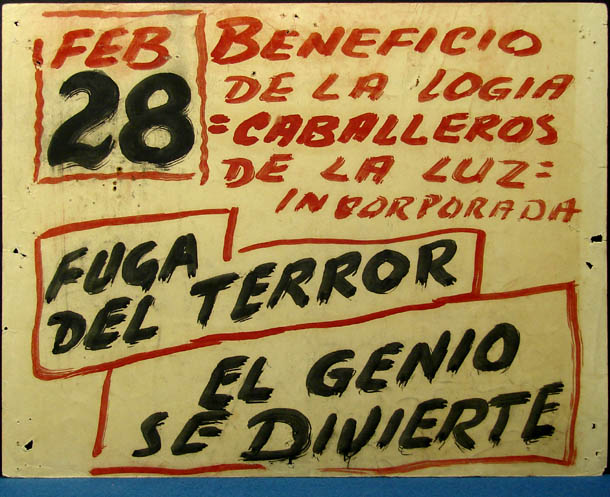 FEB
28
BENEFICIO
DE LA LOGIA
=CABALLEROS
DE LA LUZ=
INCORPORADA
FUGA
DEL TERROR
EL GENIO
SE DIVIERTE